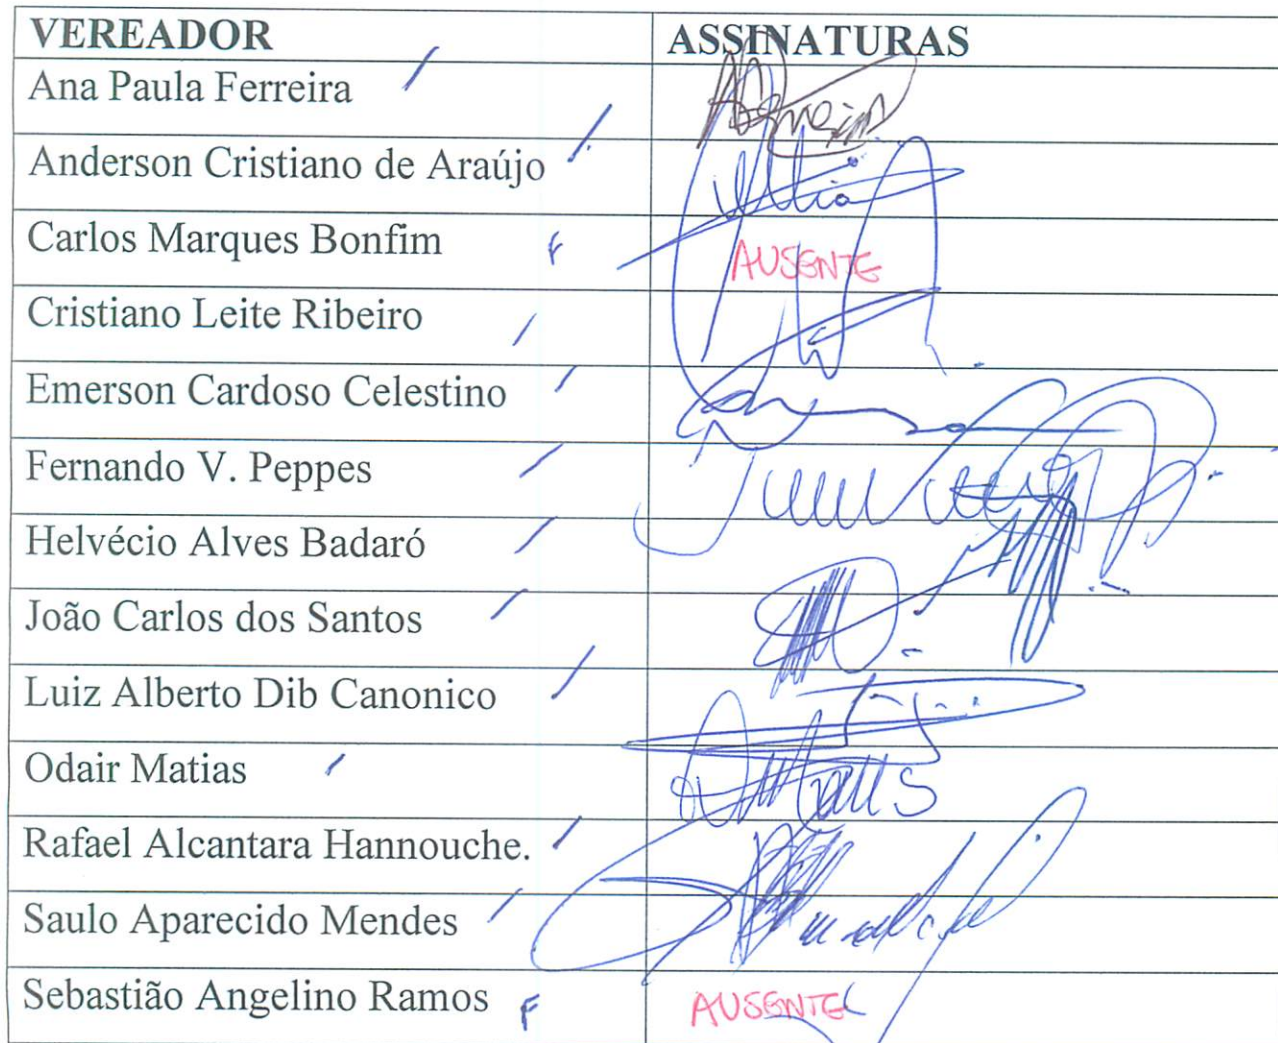 VEREADOR ASSINATURAS
Ana Paula Ferreira
Anderson Cristiano de Araújo
Carlos Marques Bonfim F AUSENTE
Cristiano Leite Ribeiro
Emerson Cardoso Celestino
Fernando V. Peppes
Helvécio Alves Badaró
João Carlos dos Santos
Luiz Alberto Dib Canonico
Odair Matias
Rafael Alcantara Hannouche.
Saulo Aparecido Mendes
Sebastião Angelino Ramos F AUSENTE